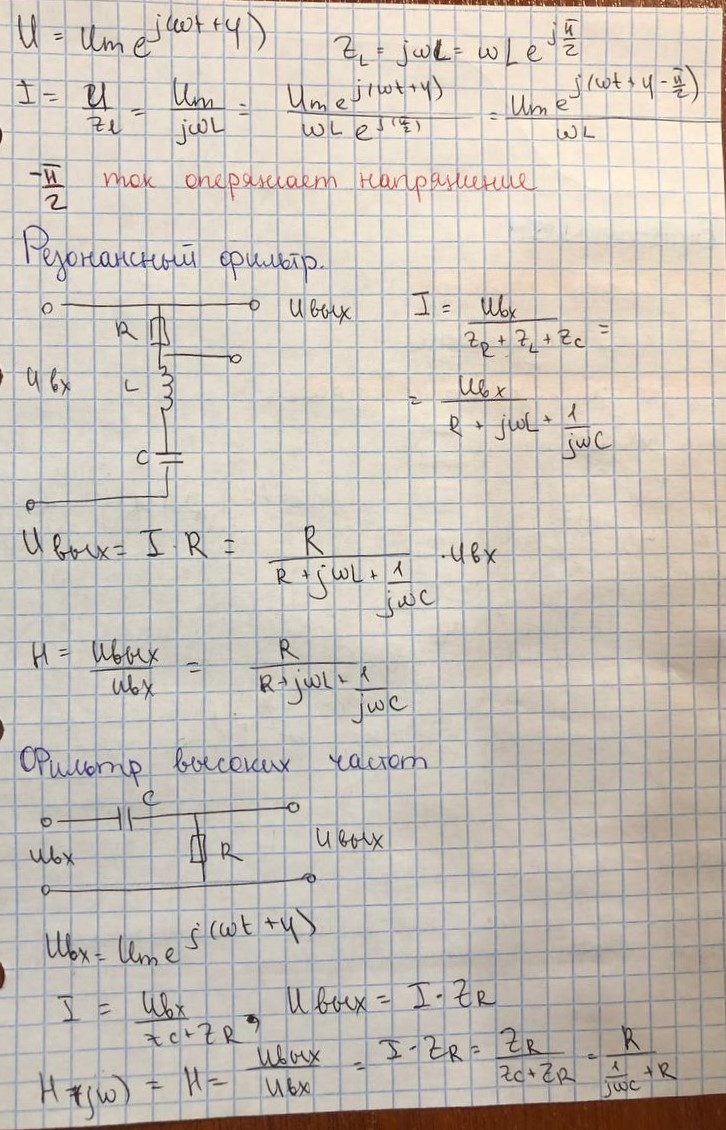 U = Um e^j(ωt+φ) Z_L = jωL = ωL e^j π/2
I = U/Z_L = Um/jωL = Um e^j(ωt+φ) / ωL e^j(π/2) = Um e^j(ωt+φ-π/2) / ωL
-π/2 ток опережает напряжение
Резонансный фильтр.
Uвых I = Uвх / Z_R + Z_L + Z_C =
R
Uвх L = Uвх / R + jωL + 1/jωC
C
Uвых = I · R = R / R + jωL + 1/jωC · Uвх
H = Uвых/Uвх = R / R + jωL + 1/jωC
Фильтр высоких частот
C
Uвх R Uвых
Uвх = Um e^j(ωt+φ)
I = Uвх / Zc+Z_R , Uвых = I · Z_R
H(jω) = H = Uвых/Uвх = I · Z_R = Z_R / Zc+Z_R = R / 1/jωC + R